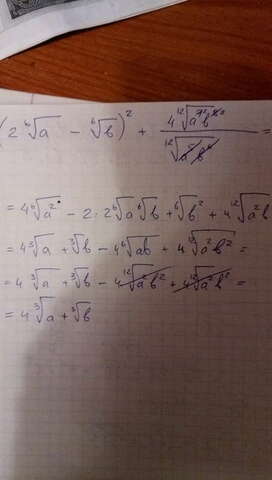 (2 ⁶√a − ⁶√b)² + 4 ¹²√ / ¹²√ =
= 4 ⁶√a² − 2 · 2 ⁶√a ⁶√b + ⁶√b² + 4 ¹²√a²b
= 4 ³√a + ³√b − 4 ⁶√ab + 4 ¹²√a²b² =
= 4 ³√a + ³√b − 4 ¹²√a²b² + 4 ¹²√a²b² =
= 4 ³√a + ³√b